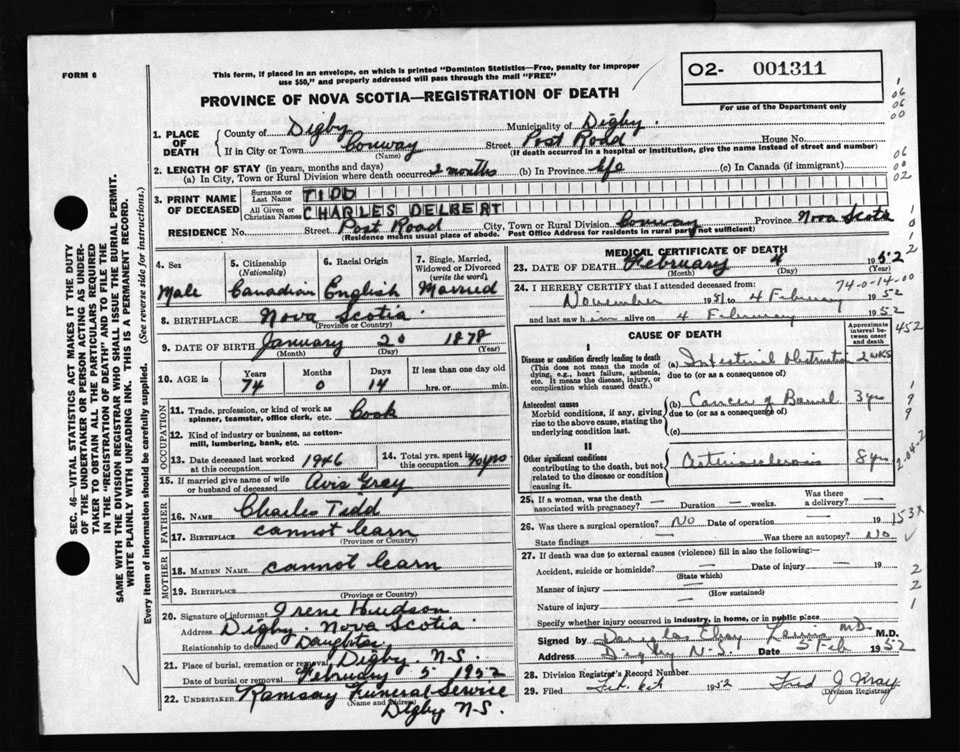 FORM 6
This form, if placed in an envelope, on which is printed "Dominion Statistics—Free, penalty for improper
use $50," and properly addressed will pass through the mail "FREE"
O2- 001311
For use of the Department only
PROVINCE OF NOVA SCOTIA—REGISTRATION OF DEATH
1. PLACE OF DEATH
County of Digby Municipality of Digby.
If in City or Town Conway (Name) Street Post Road House No.
(If death occurred in a hospital or institution, give the name instead of street and number)
2. LENGTH OF STAY (in years, months and days)
(a) In City, Town or Rural Division where death occurred 2 months (b) In Province life (c) In Canada (if immigrant)
3. PRINT NAME OF DECEASED
Surname or Last Name TIDD
All Given or Christian Names CHARLES DELBERT
RESIDENCE No. Street Post Road City, Town or Rural Division Conway Province Nova Scotia
(Residence means usual place of abode. Post Office Address for residents in rural parts not sufficient)
4. Sex Male
5. Citizenship (Nationality) Canadian
6. Racial Origin English
7. Single, Married, Widowed or Divorced (write the word) Married
8. BIRTHPLACE Nova Scotia
(Province or Country)
9. DATE OF BIRTH January 20 1878
(Month) (Day) (Year)
10. AGE in Years 74 Months 0 Days 14 If less than one day old hrs. or min.
OCCUPATION
11. Trade, profession, or kind of work as
spinner, teamster, office clerk, etc. Cook
12. Kind of industry or business, as cotton-
mill, lumbering, bank, etc.
13. Date deceased last worked
at this occupation 1946
14. Total yrs. spent in
this occupation 40 yrs
15. If married give name of wife
or husband of deceased Avis Grey
FATHER
16. NAME Charles Tidd
17. BIRTHPLACE cannot learn
(Province or Country)
MOTHER
18. MAIDEN NAME cannot learn
19. BIRTHPLACE
(Province or Country)
20. Signature of informant Irene Hudson
Address Digby. Nova Scotia
Relationship to deceased Daughter
21. Place of burial, cremation or removal Digby. N.S.
Date of burial or removal February 5 1952
22. UNDERTAKER Ramsay Funeral Service
(Name and Address)
Digby N.S.
MEDICAL CERTIFICATE OF DEATH
23. DATE OF DEATH February 4 1952
(Month) (Day) (Year)
74-0-14-00
24. I HEREBY CERTIFY that I attended deceased from:
November 1951 to 4 February 1952
and last saw him alive on 4 February 1952
CAUSE OF DEATH
Approximate interval between onset and death
I
Disease or condition directly leading to death
(This does not mean the mode of
dying, e.g., heart failure, asthenia,
etc. It means the disease, injury, or
complication which caused death.)
(a) Intestinal Obstruction 2 wks
due to (or as a consequence of)
Antecedent causes
Morbid conditions, if any, giving
rise to the above cause, stating the
underlying condition last.
(b) Cancer of Bowel 3 yrs
due to (or as a consequence of)
(c)
II
Other significant conditions
contributing to the death, but not
related to the disease or condition
causing it.
Arteriosclerosis 8 yrs
25. If a woman, was the death
associated with pregnancy? — Duration — weeks. Was there a delivery? —
26. Was there a surgical operation? No Date of operation — 19
State findings — Was there an autopsy? No
27. If death was due to external causes (violence) fill in also the following:—
Accident, suicide or homicide? — Date of injury — 19
(State which)
Manner of injury —
(How sustained)
Nature of injury —
Specify whether injury occurred in industry, in home, or in public place
Signed by M.D. M.D.
Address Digby N.S. Date 5 Feb 1952
28. Division Registrar's Record Number
29. Filed Feb. 6th 1952 Fred J
(Division Registrar)
SEC. 46—VITAL STATISTICS ACT MAKES IT THE DUTY
OF THE UNDERTAKER OR PERSON ACTING AS UNDER-
TAKER TO OBTAIN ALL THE PARTICULARS REQUIRED
IN THE "REGISTRATION OF DEATH" AND TO FILE THE
SAME WITH THE DIVISION REGISTRAR WHO SHALL ISSUE THE BURIAL PERMIT.
WRITE PLAINLY WITH UNFADING INK. THIS IS A PERMANENT RECORD.
Every item of information should be carefully supplied. (See reverse side for instructions.)
1
06
06
00
06
00
02
452
2-04-2
153X
2
2
1